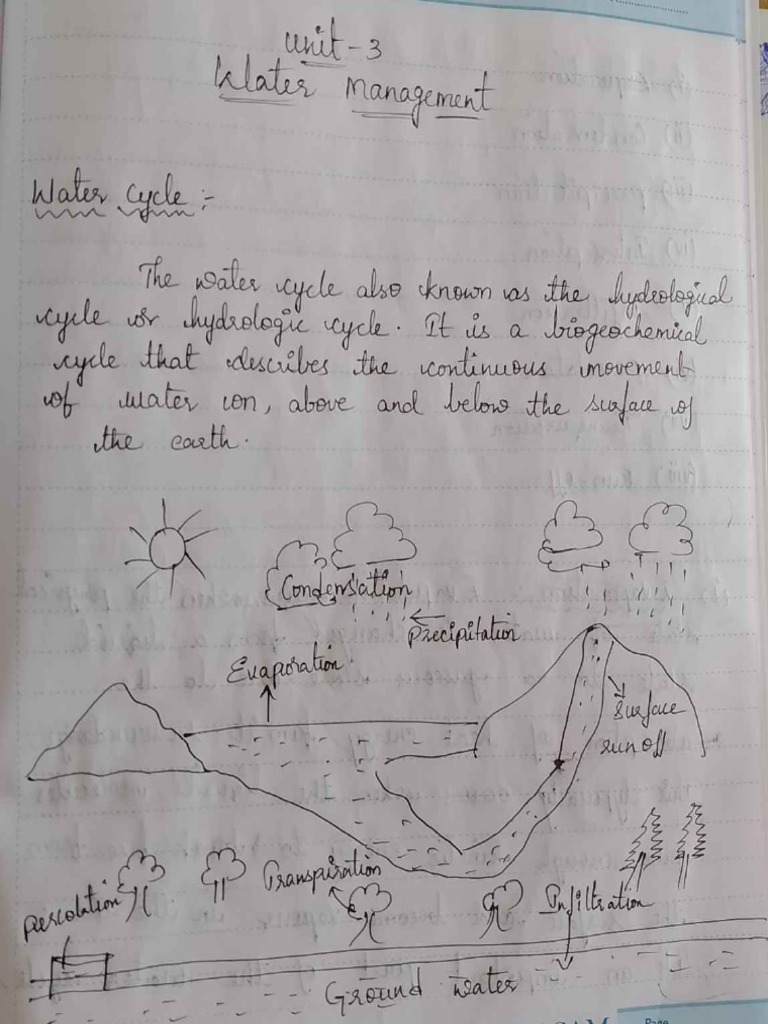 Unit - 3
Water Management
Water cycle :-
The water cycle also known as the hydrological
cycle or hydrologic cycle. It is a biogeochemical
cycle that describes the continuous movement
of water on, above and below the surface of
the earth.
Condensation
Precipitation
Evaporation
Surface
run off
Transpiration
percolation
Infiltration
Ground water
Page